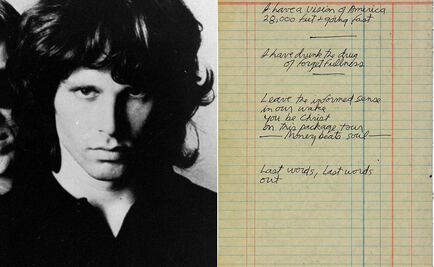 I have a vision of America
28,000 feet & going fast
I have drunk the drug
of forgetfullness
Leave the informed sense
in our wake
You be Christ
on this package tour
—Money beats soul—
Last words, Last words
out